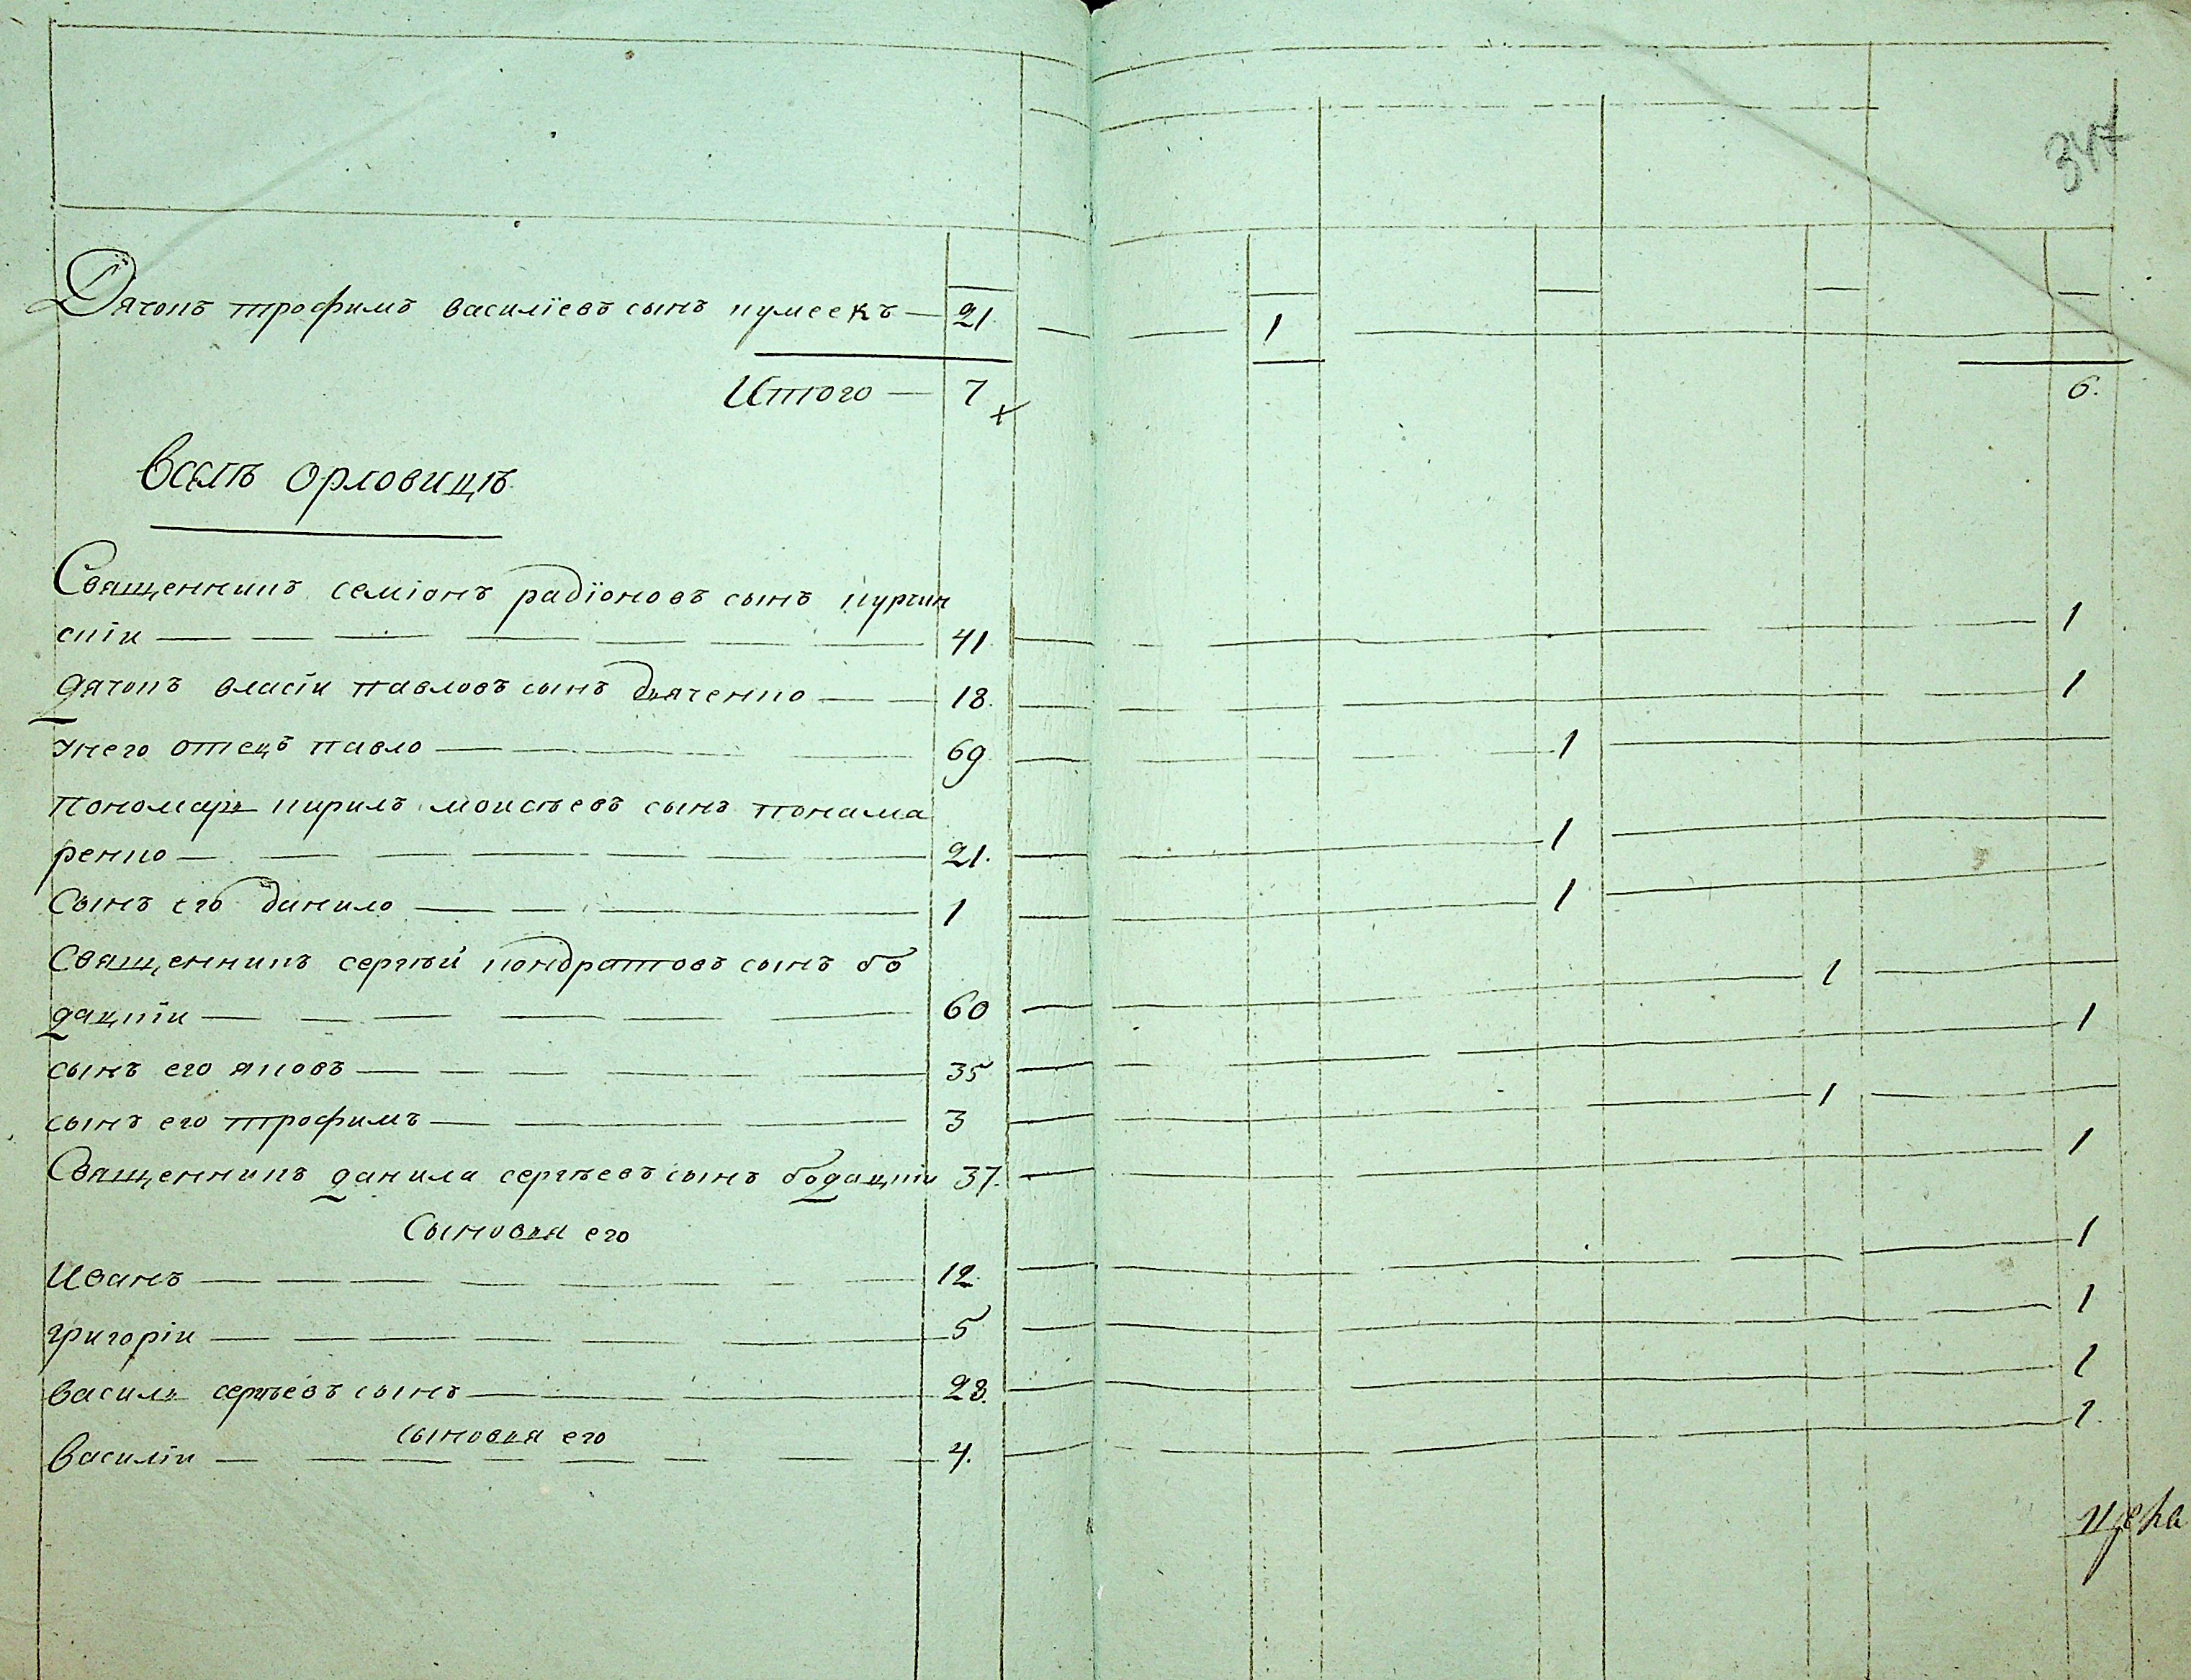 347
Дячокъ трофимъ василїевъ сынъ кумеекъ — 21 1
Итого — 7 6.
Вселѣ орловицѣ
Священникъ семіонъ радїоновъ сынъ курчин
скїи 41 1
дячокъ власїи павловъ сынъ дьяченко 18. 1
унего отецъ павло 69 1
пономарь кирилъ моисѣевъ сынъ понама
ренко 21. 1
Сынъ его данило 1 1
Священникъ сергѣй кондратовъ сынъ бо
дацкїи 60 1
сынъ его яковъ 35 1
сынъ его трофимъ 3 1
Священникъ данила сергѣевъ сынъ бодацкїи 37. 1
Сыновья его
Иванъ 12. 1
григорїи 5 1
василь сергѣевъ сынъ 28. 1
сыновья его
василїи 4. 1